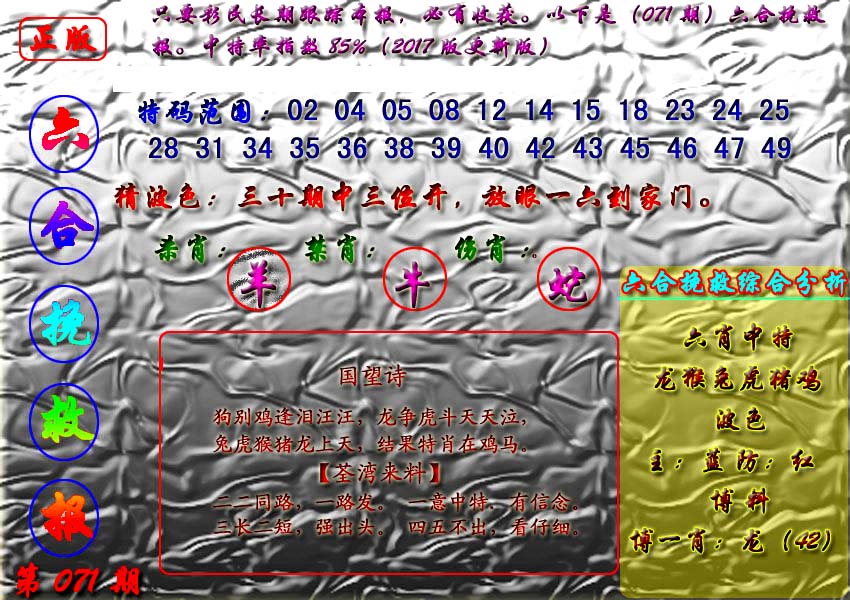 正版
只要彩民长期跟踪本报，必有收获。以下是（071期）六合挽救
报。中特率指数85%（2017版更新版）
六合挽救报
第071期
特码范围：02 04 05 08 12 14 15 18 23 24 25
28 31 34 35 36 38 39 40 42 43 45 46 47 49
猜波色：三十期中三位开，放眼一六到家门。
杀肖：羊 禁肖：牛 伤肖：蛇
国望诗
狗别鸡逢泪汪汪，龙争虎斗天天泣，
兔虎猴猪龙上天，结果特肖在鸡马。
【荃湾来料】
二二同路，一路发。 一意中特，有信念。
三长二短，强出头。 四五不出，看仔细。
六合挽救综合分析
六肖中特
龙猴兔虎猪鸡
波色
主：蓝防：红
博料
博一肖：龙（42）